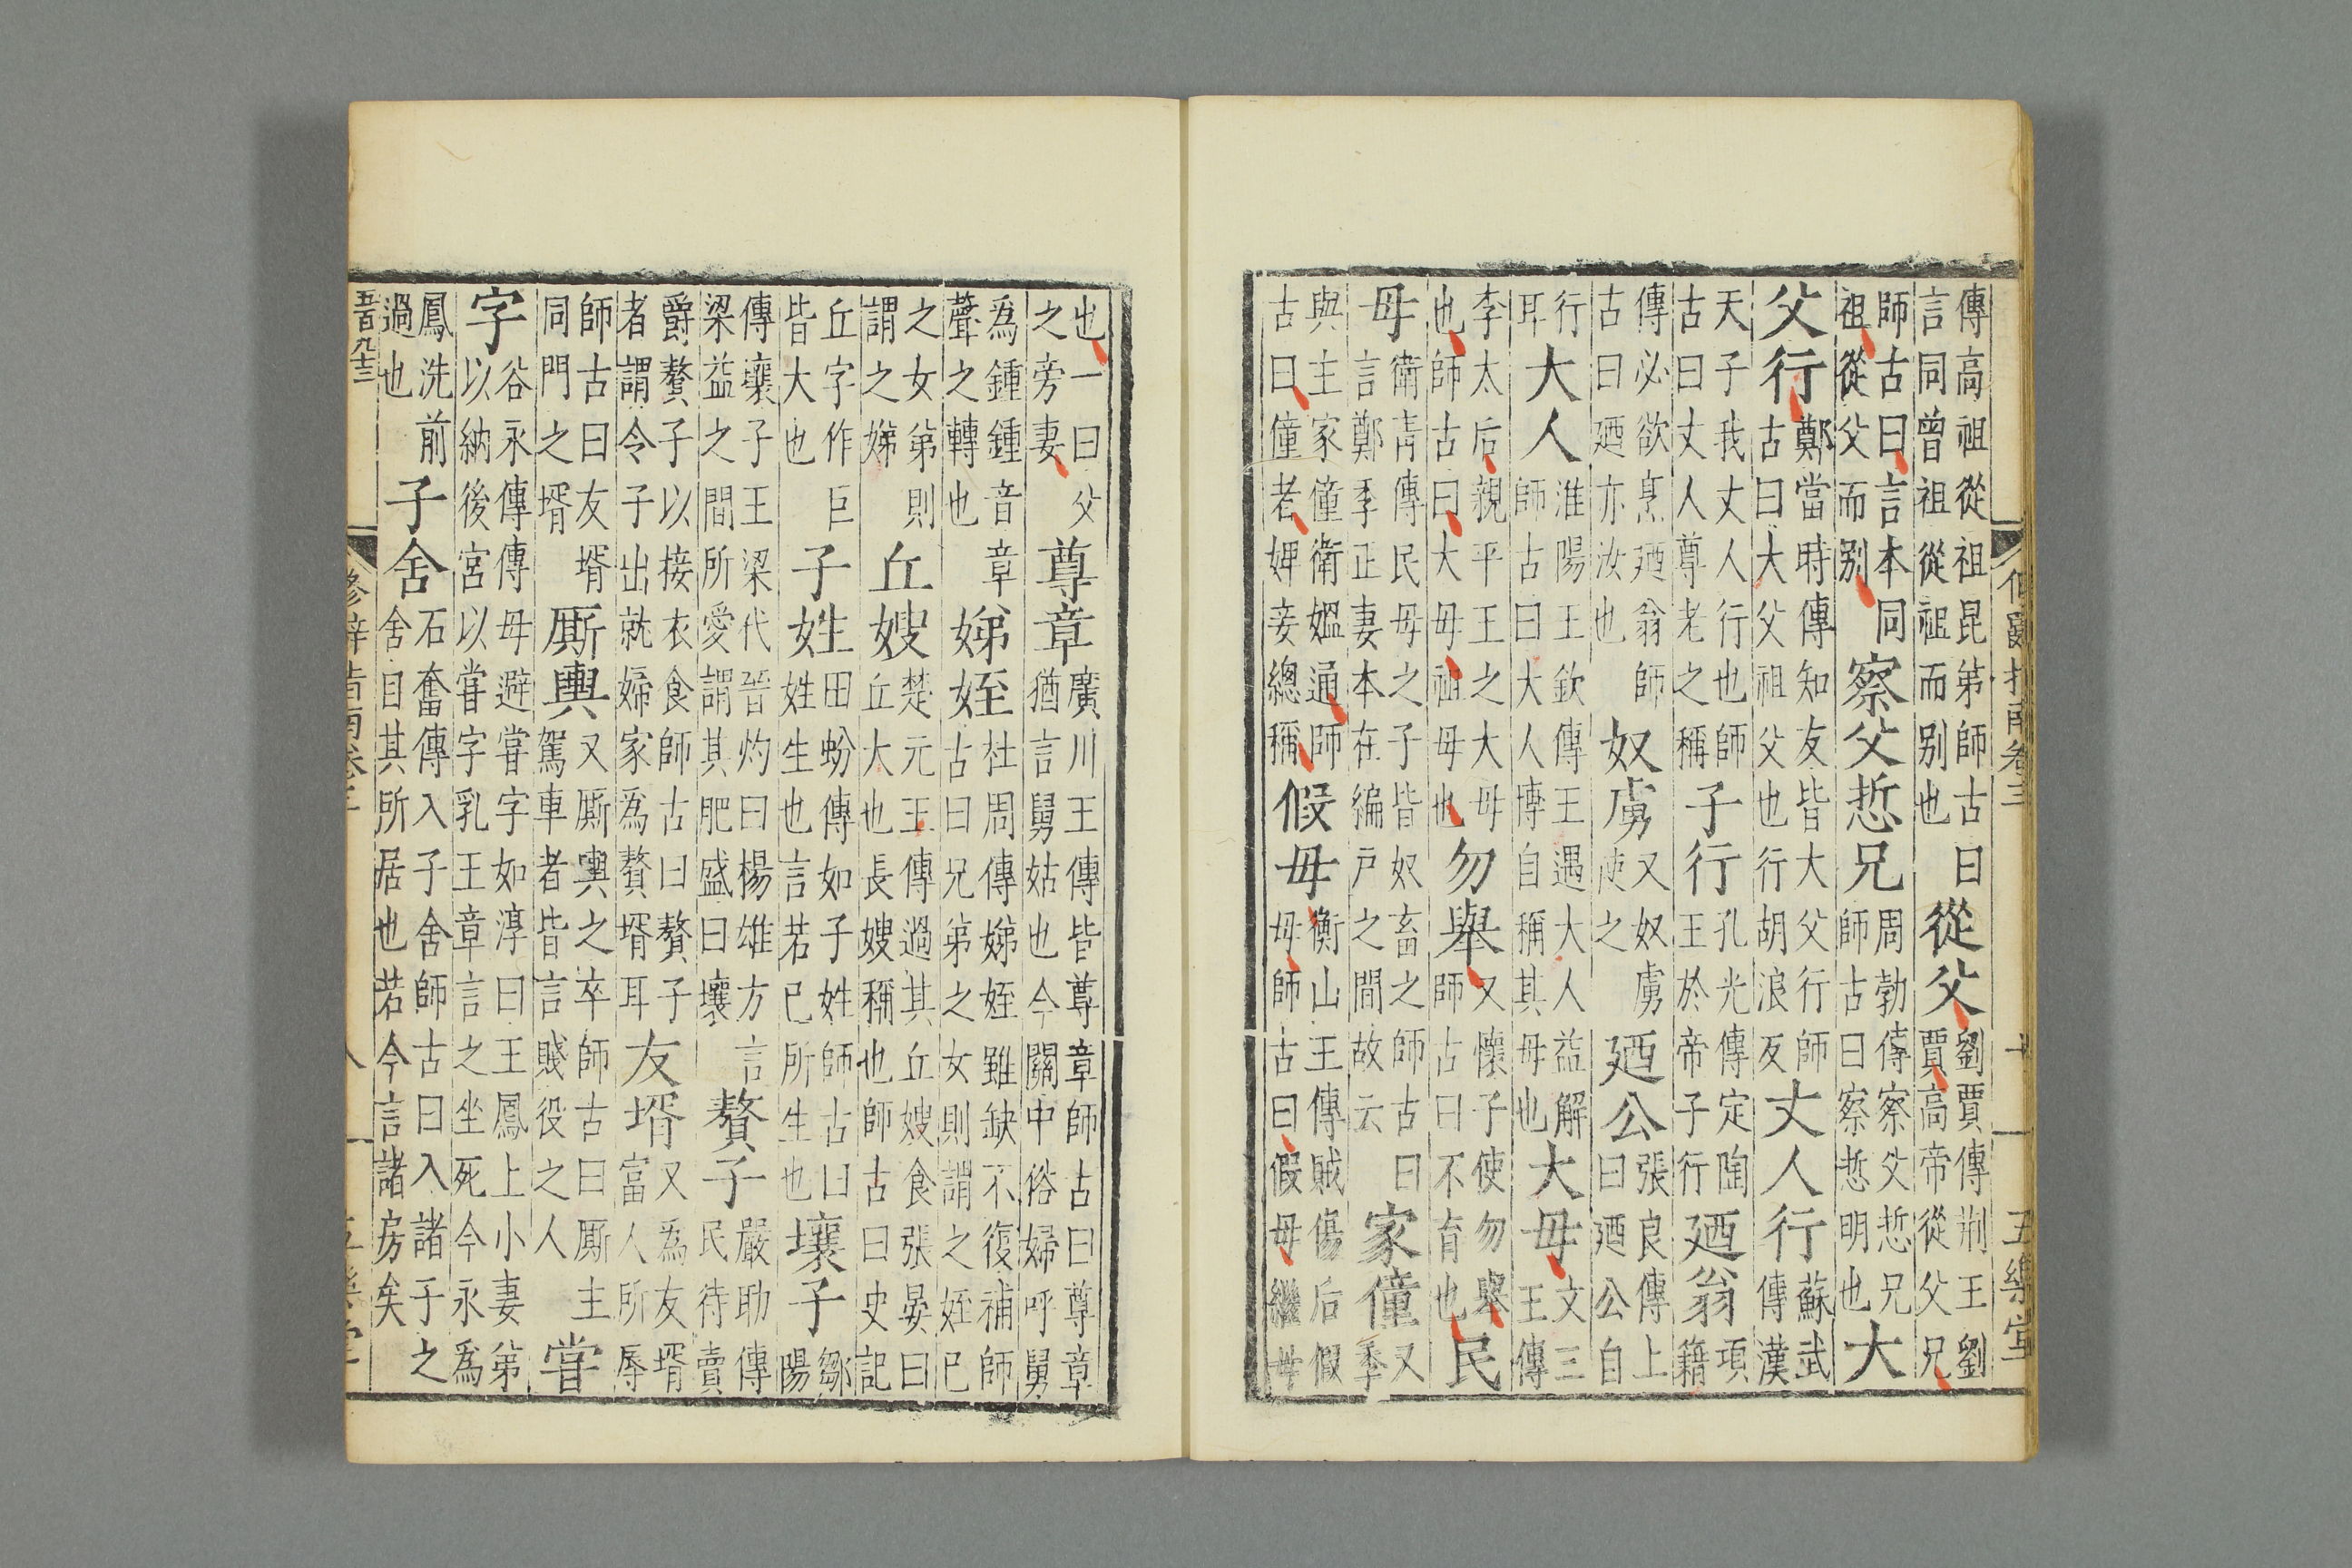 傳高祖從祖昆弟師古曰
言同曾祖從祖而别也
從父
劉賈傳荊王劉
賈高帝從父兄
師古曰言本同
祖從父而别
察父悊兄
周勃傳察父悊兄
師古曰察悊明也
大
父行
鄭當時傳知友皆大父行師
古曰大父祖父也行胡浪反
丈人行
蘇武
傳漢
天子我丈人行也師
古曰丈人尊老之稱
子行
孔光傳定陶
王於帝子行
廼翁
項
籍
傳必欲烹廼翁師
古曰廼亦汝也
奴虜
又奴虜
使之
廼公
張良傳上
曰廼公自
行
耳
大人
淮陽王欽傳王遇大人益解
師古曰大人博自稱其母也
大母
文三
王傳
李太后親平王之大母
也師古曰大母祖母也
勿舉
又懷子使勿舉
師古曰不育也
民
母
衛青傳民母之子皆奴畜之師古曰
言鄭季正妻本在編戸之間故云
家僮
又
季
與主家僮衛媼通師
古曰僮者婢妾總稱
假母
衡山王傳賊傷后假
母師古曰假母繼母
也一曰父
之旁妻
尊章
廣川王傳皆尊章師古曰尊章
猶言舅姑也今關中俗婦呼舅
為鍾鍾音章
聲之轉也
娣姪
杜周傳娣姪雖缺不復補師
古曰兄弟之女則謂之姪已
之女弟則
謂之娣
丘嫂
楚元王傳過其丘嫂食張晏曰
丘大也長嫂稱也師古曰史記
丘字作巨
皆大也
子姓
田蚡傳如子姓師古曰
姓生也言若已所生也
壤子
鄒
陽
傳壤子王梁代晉灼曰楊雄方言
梁益之間所愛謂其肥盛曰壤
贅子
嚴助傳
民待賣
爵贅子以接衣食師古曰贅子
者謂令子出就婦家為贅壻耳
友壻
又為友壻
富人所辱
師古曰友壻
同門之壻
厮輿
又厮輿之卒師古曰厮主
駕車者皆言賤役之人
嘗
字
谷永傳傳毋避嘗字如淳曰王鳳上小妻弟
以納後宮以嘗字乳王章言之坐死今永為
鳳洗前
過也
子舍
石奮傳入子舍師古曰入諸子之
舍自其所居也若今言諸房矣